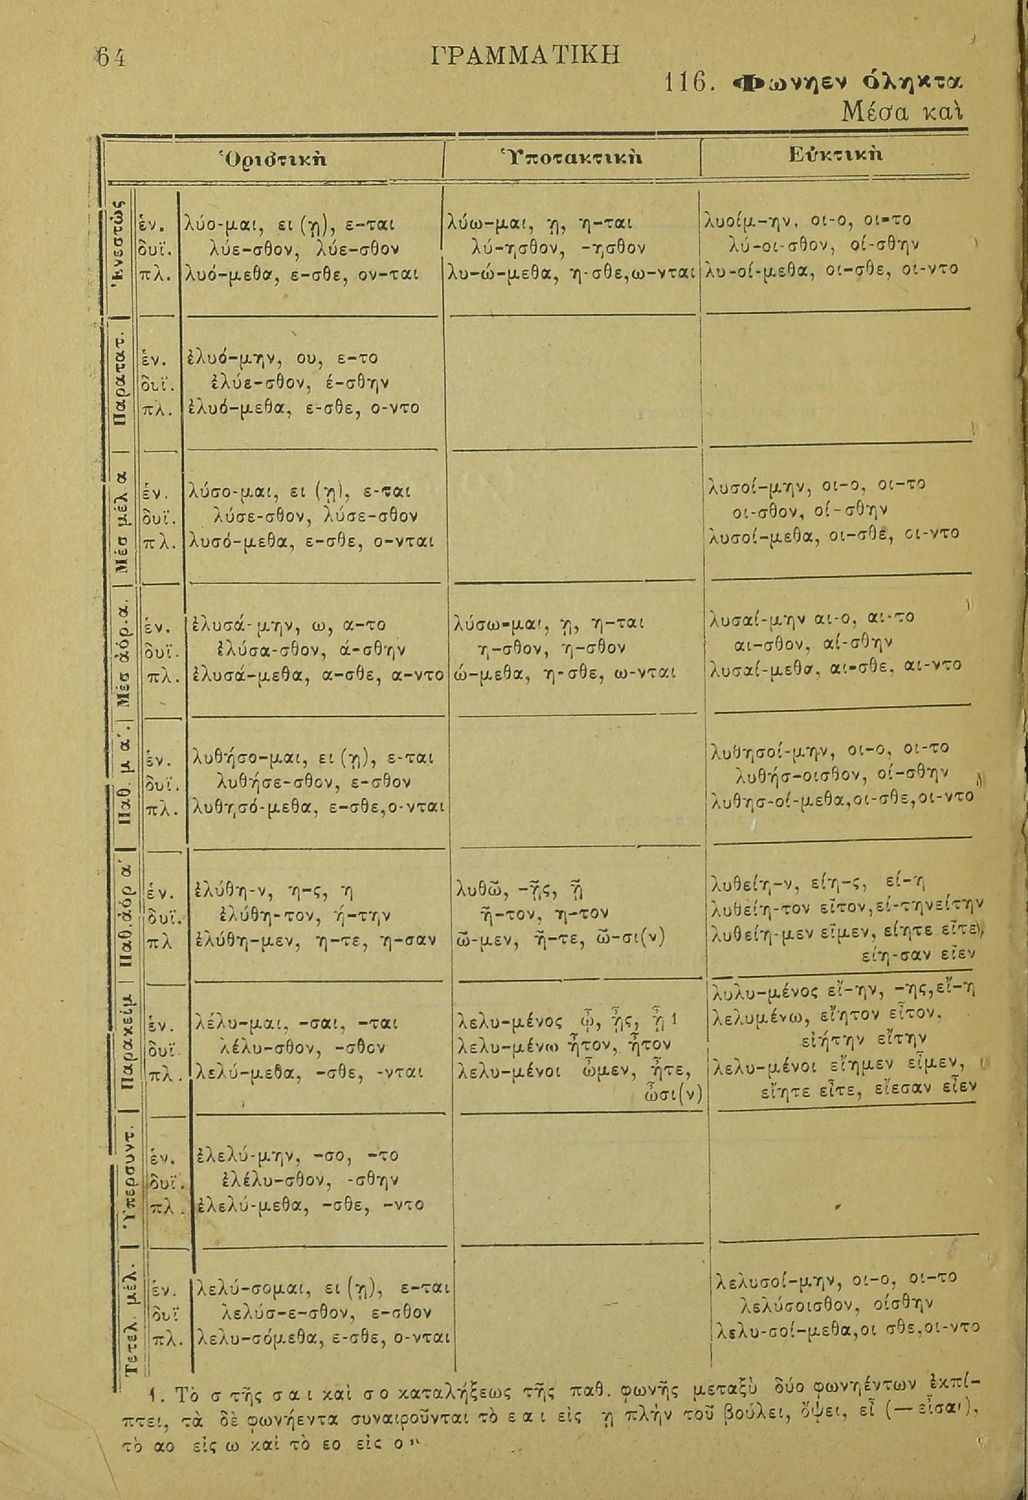 64
ΓΡΑΜΜΑΤΙΚΗ
116. Φωνηεν όληκτα
Μέσα καὶ
Ὁριστικὴ
Ὑποτακτικὴ
Εὐκτικὴ
Ἐνεστὼς
ἑν. λύο-μαι, ει (ῃ), ε-ται
δυϊ. λύε-σθον, λύε-σθον
πλ. λυό-μεθα, ε-σθε, ον-ται
λύω-μαι, ῃ, η-ται
λύ-ησθον, -ησθον
λυ-ώ-μεθα, η-σθε,ω-νται
λυοίμ-ην, οι-ο, οι-το
λύ-οι-σθον, οί-σθην
λυ-οί-μεθα, οι-σθε, οι-ντο
Παρατατ.
ἑν. ἐλυό-μην, ου, ε-το
δυϊ. ἐλύε-σθον, έ-σθην
πλ. ἐλυό-μεθα, ε-σθε, ο-ντο
Μέσ μέλ α
ἑν. λύσο-μαι, ει (ῃ), ε-ται
δυϊ. λύσε-σθον, λύσε-σθον
πλ. λυσό-μεθα, ε-σθε, ο-νται
λυσοί-μην, οι-ο, οι-το
οι-σθον, οί-σθην
λυσοί-μεθα, οι-σθε, οι-ντο
Μέσ ἀόρ.α.
ἑν. ἐλυσά-μην, ω, α-το
δυϊ. ἐλύσα-σθον, ά-σθην
πλ. ἐλυσά-μεθα, α-σθε, α-ντο
λύσω-μαι, ῃ, η-ται
η-σθον, η-σθον
ώ-μεθα, η-σθε, ω-νται
λυσαί-μην αι-ο, αι-το
αι-σθον, αί-σθην
λυσαί-μεθα, αι-σθε, αι-ντο
Παθ. μ α΄.
ἑν. λυθήσο-μαι, ει (ῃ), ε-ται
δυϊ. λυθήσε-σθον, ε-σθον
πλ. λυθησό-μεθα, ε-σθε,ο-νται
λυθησοί-μην, οι-ο, οι-το
λυθήσ-οισθον, οί-σθην
λυθησ-οί-μεθα,οι-σθε,οι-ντο
Παθ.ἀόρ α΄
ἑν. ἐλύθη-ν, η-ς, η
δυϊ. ἐλύθη-τον, ή-την
πλ ἐλύθη-μεν, η-τε, η-σαν
λυθῶ, -ῇς, ῇ
ῆ-τον, η-τον
ῶ-μεν, ῆ-τε, ῶ-σι(ν)
λυθείη-ν, είη-ς, εί-η
λυθείη-τον εῖτον,εί-τηνείτην
λυθείη-μεν εῖμεν, είητε εῖτε),
είη-σαν εῖεν
Παρακείμ
ἑν. λέλυ-μαι, -σαι, -ται
δυϊ. λέλυ-σθον, -σθον
πλ. λελύ-μεθα, -σθε, -νται
λελυ-μένος ᾦ, ᾖς, ᾖ 1
λελυ-μένω ἦτον, ἦτον
λελυ-μένοι ὦμεν, ἦτε,
ὦσι(ν)
λυλυ-μένος εἴ-ην, -ης,εἴ-η
λελυμένω, εἴητον εἶτον,
εἰήτην εἴτην
λελυ-μένοι εἴημεν εἶμεν,
εἴητε εἶτε, εἴεσαν εἶεν
Ὑπερσυντ.
ἑν. ἐλελύ-μην, -σο, -το
δυϊ. ἐλέλυ-σθον, -σθην
πλ. ἐλελύ-μεθα, -σθε, -ντο
Τετελ. μέλ.
ἑν. λελύ-σομαι, ει (ῃ), ε-ται
δυϊ λελύσ-ε-σθον, ε-σθον
πλ. λελυ-σόμεθα, ε-σθε, ο-νται
λελυσοί-μην, οι-ο, οι-το
λελύσοισθον, οίσθην
λελυ-σοί-μεθα,οι σθε,οι-ντο
1. Τὸ σ τῆς σ α ι καὶ σ ο καταλήξεως τῆς παθ. φωνῆς μεταξὺ δύο φωνηέντων ἐκπί-
πτει, τὰ δὲ φωνήεντα συναιροῦνται τὸ ε α ι εἰς ῃ πλὴν τοῦ βούλει, ὄψει, εἶ (—εἶσαι),
τὸ αο εἰς ω καὶ τὸ εο εἰς ου